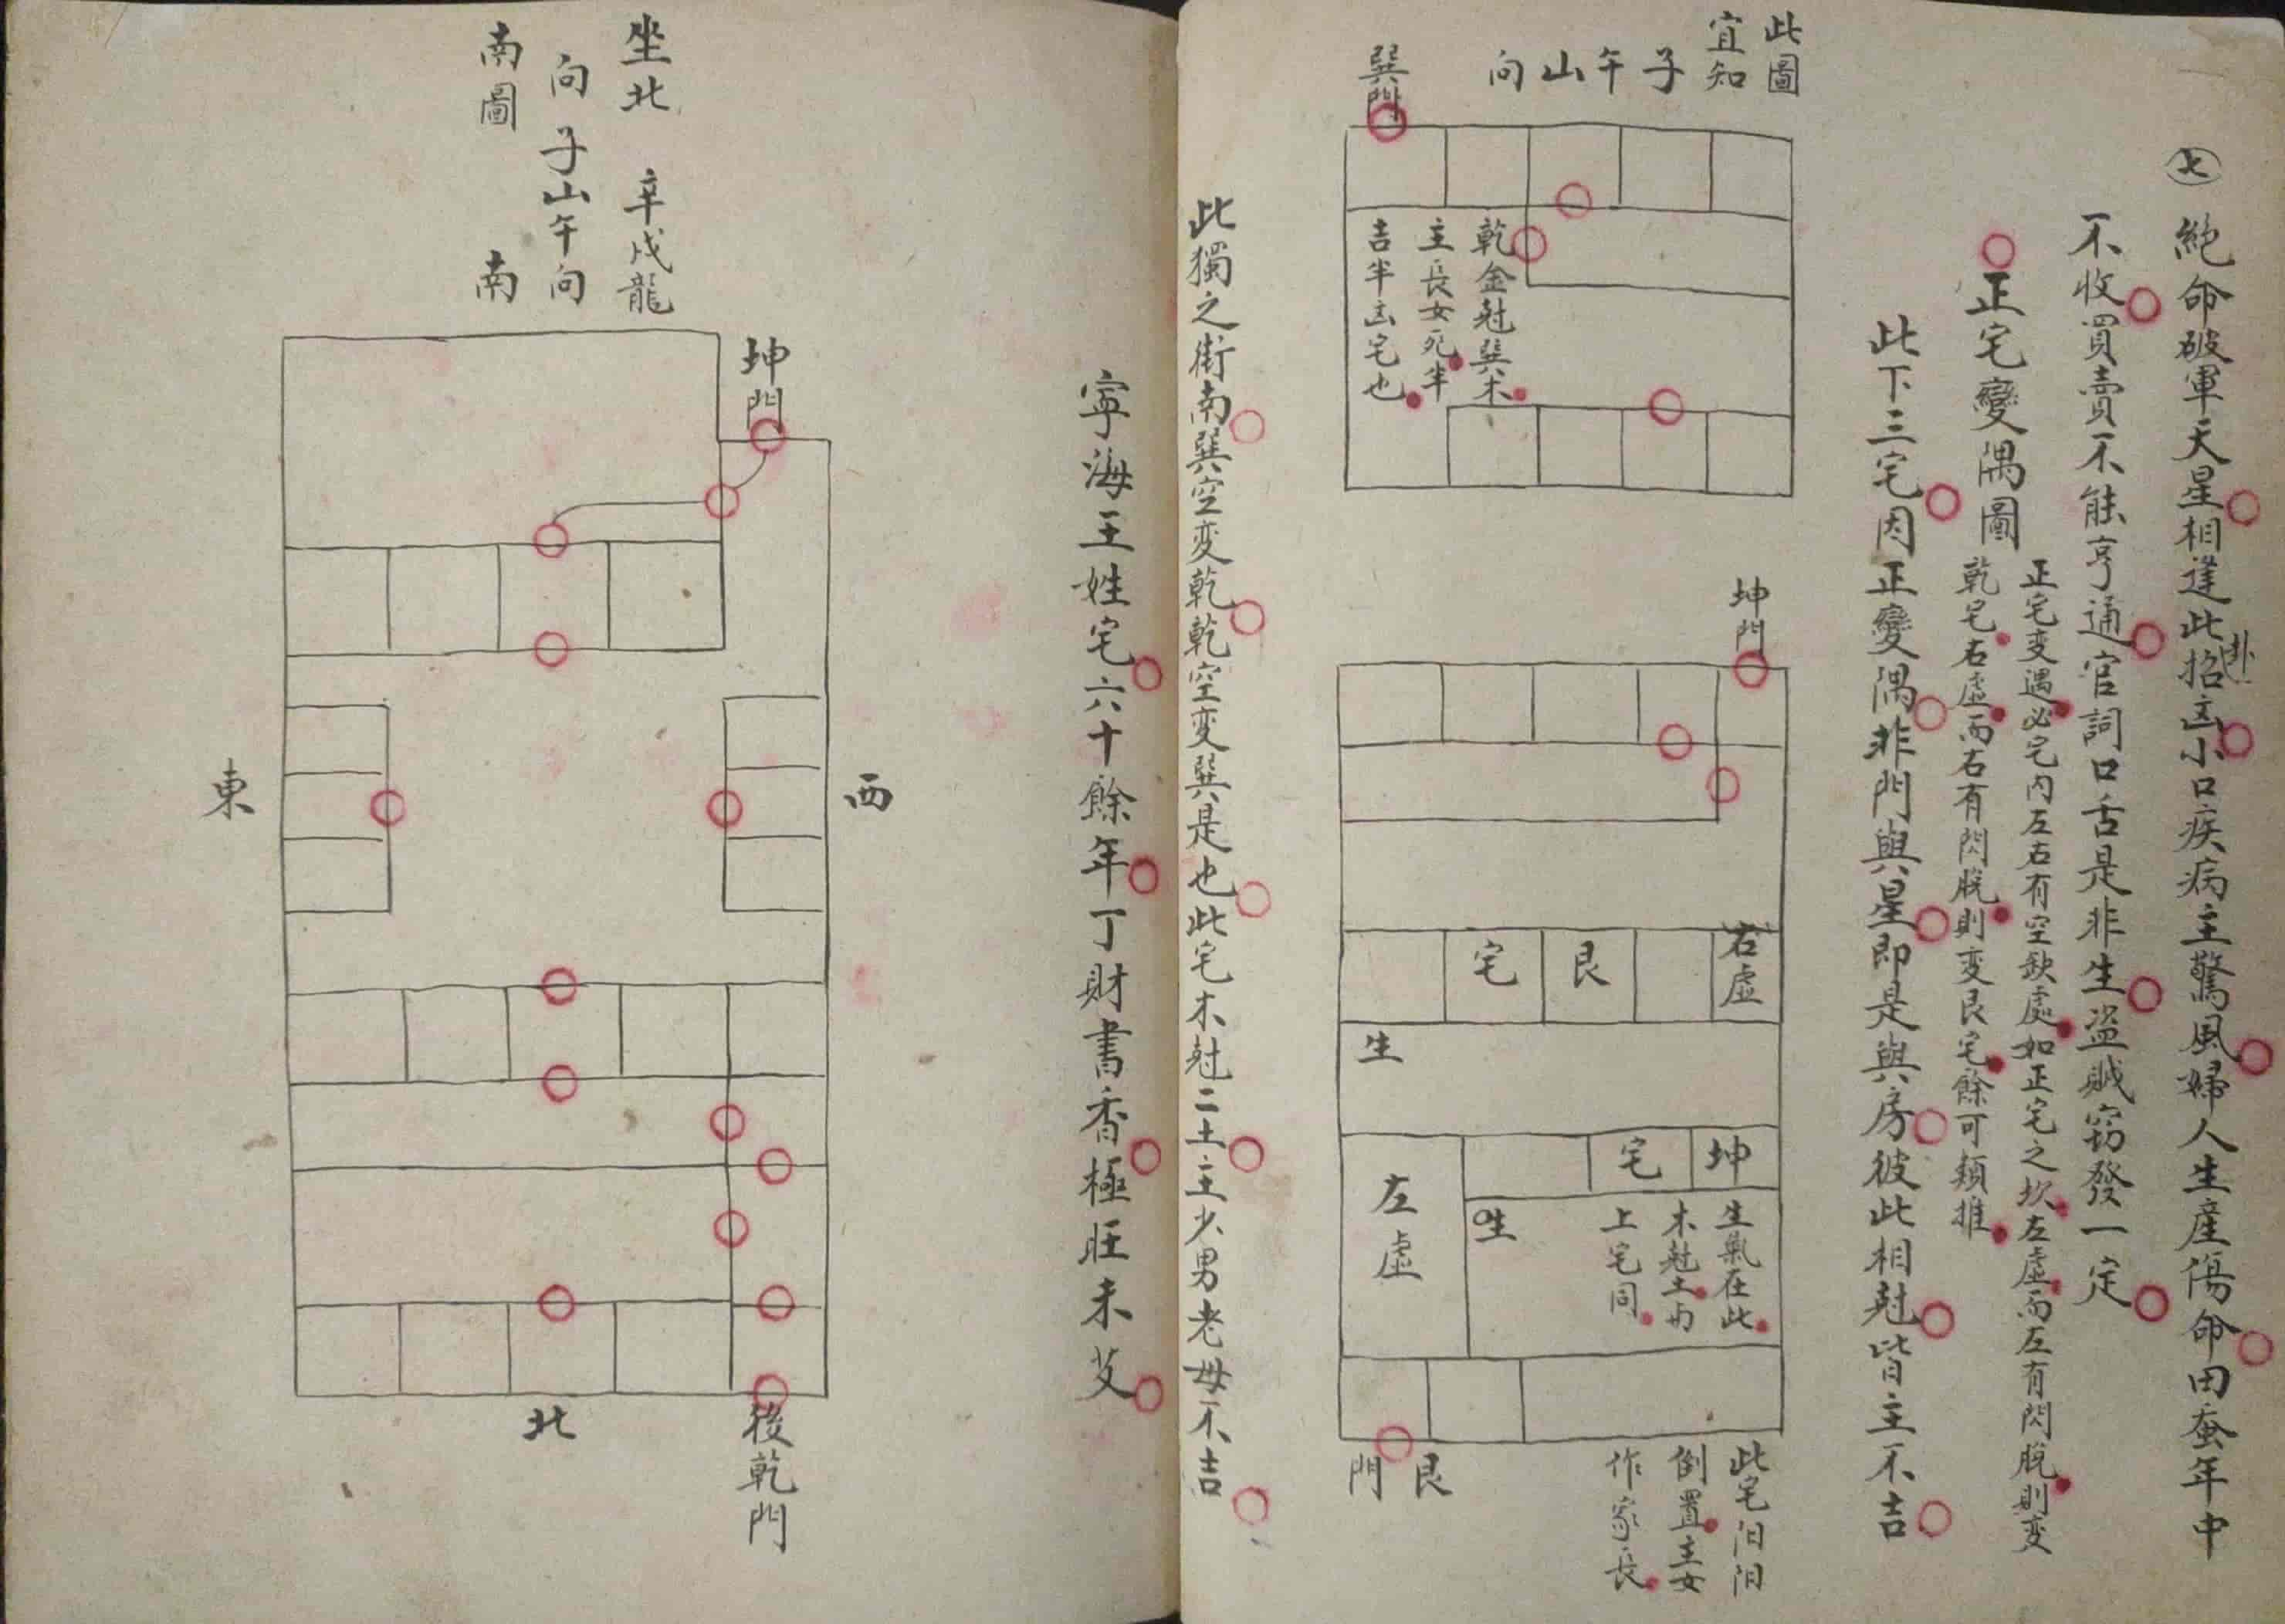 七 絕命破軍天星相逢此招凶小口疾病主驚風婦人生產傷命田蚕年中
卦
不收買賣不能亨通官詞口舌是非生盜賊窃發一定
正宅變隅圖
正宅变遇必宅內左右有空缺處如正宅之坎左虛而左有閃脫則变
乾宅右虛而右有閃脫則变艮宅餘可類推
此下三宅因正變隅非門與星即是與房彼此相尅皆主不吉
此圖
宜知
子午山向
巽門
乾金尅巽木
主長女死半
吉半凶宅也
坤門
右虛
艮宅
生
坤宅
生氣在此
木尅土与
上宅同
生
左虛
艮門
此宅汩汩
倒置主女
作家長
此獨之街南巽空变乾乾空变巽是也此宅木尅二土主少男老母不吉
寧海王姓宅六十餘年丁財書香極旺未艾
坐北 辛戌龍
向 子山午向
南圖 南
坤門
西
東
北
後乾門